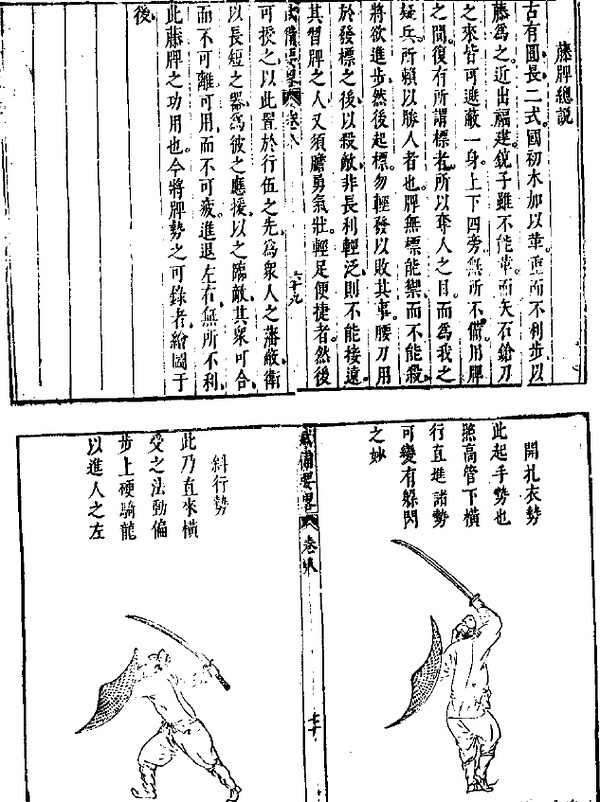 藤牌總說
古有圓長二式國初木加以革重而不利步以
藤為之近出福建銃子雖不能革而矢石鎗刀
之來皆可遮蔽一身上下四旁無所不備用牌
之間復有所謂標者所以奪人之目而為我之
疑兵所頼以勝人者也牌無標能禦而不能殺
將欲進步然後起標勿輕發以敗其事腰刀用
於發標之後以殺敵非長利輕泛則不能接遠
其習牌之人又須膽勇氣壯輕足便捷者然後
武備要畧 卷八 六十九
可授之以此置於行伍之先為衆人之藩蔽衛
以長短之器為彼之應援以之臨敵其衆可合
而不可離可用而不可疲進退左右無所不利
此藤牌之功用也今將牌勢之可錄者繪圖于
後
開扎衣勢
此起手勢也
照高管下橫
行直進諸勢
可變有躲閃
之妙
武備要畧 卷八 七十
斜行勢
此乃直來橫
受之法動偏
步上硬騎龍
以進人之左